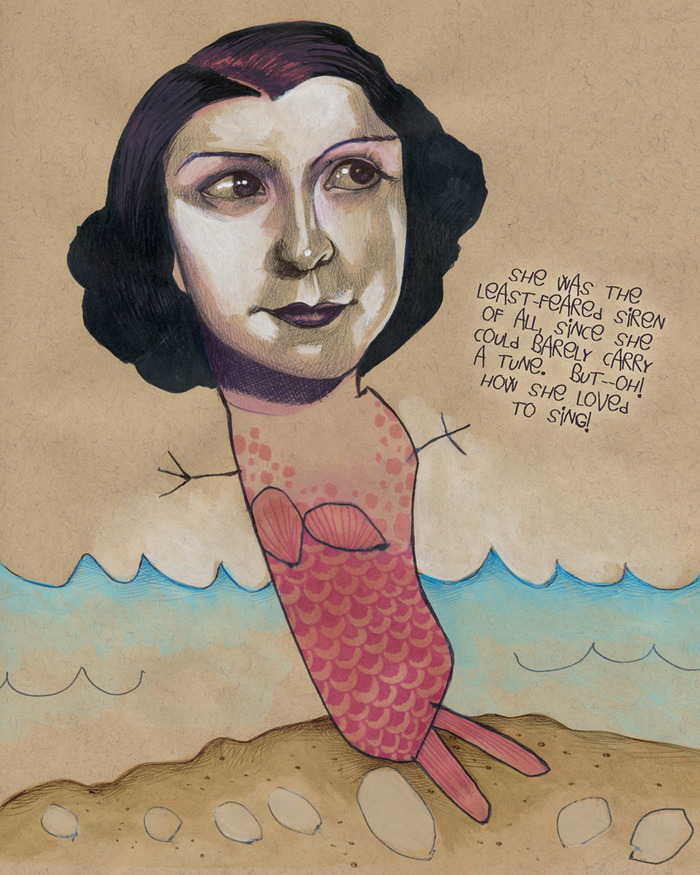 SHE WAS THE
LEAST-FEARED SIREN
OF ALL, SINCE SHE
COULD BARELY CARRY
A TUNE. BUT--OH!
HOW SHE LOVED
TO SING!